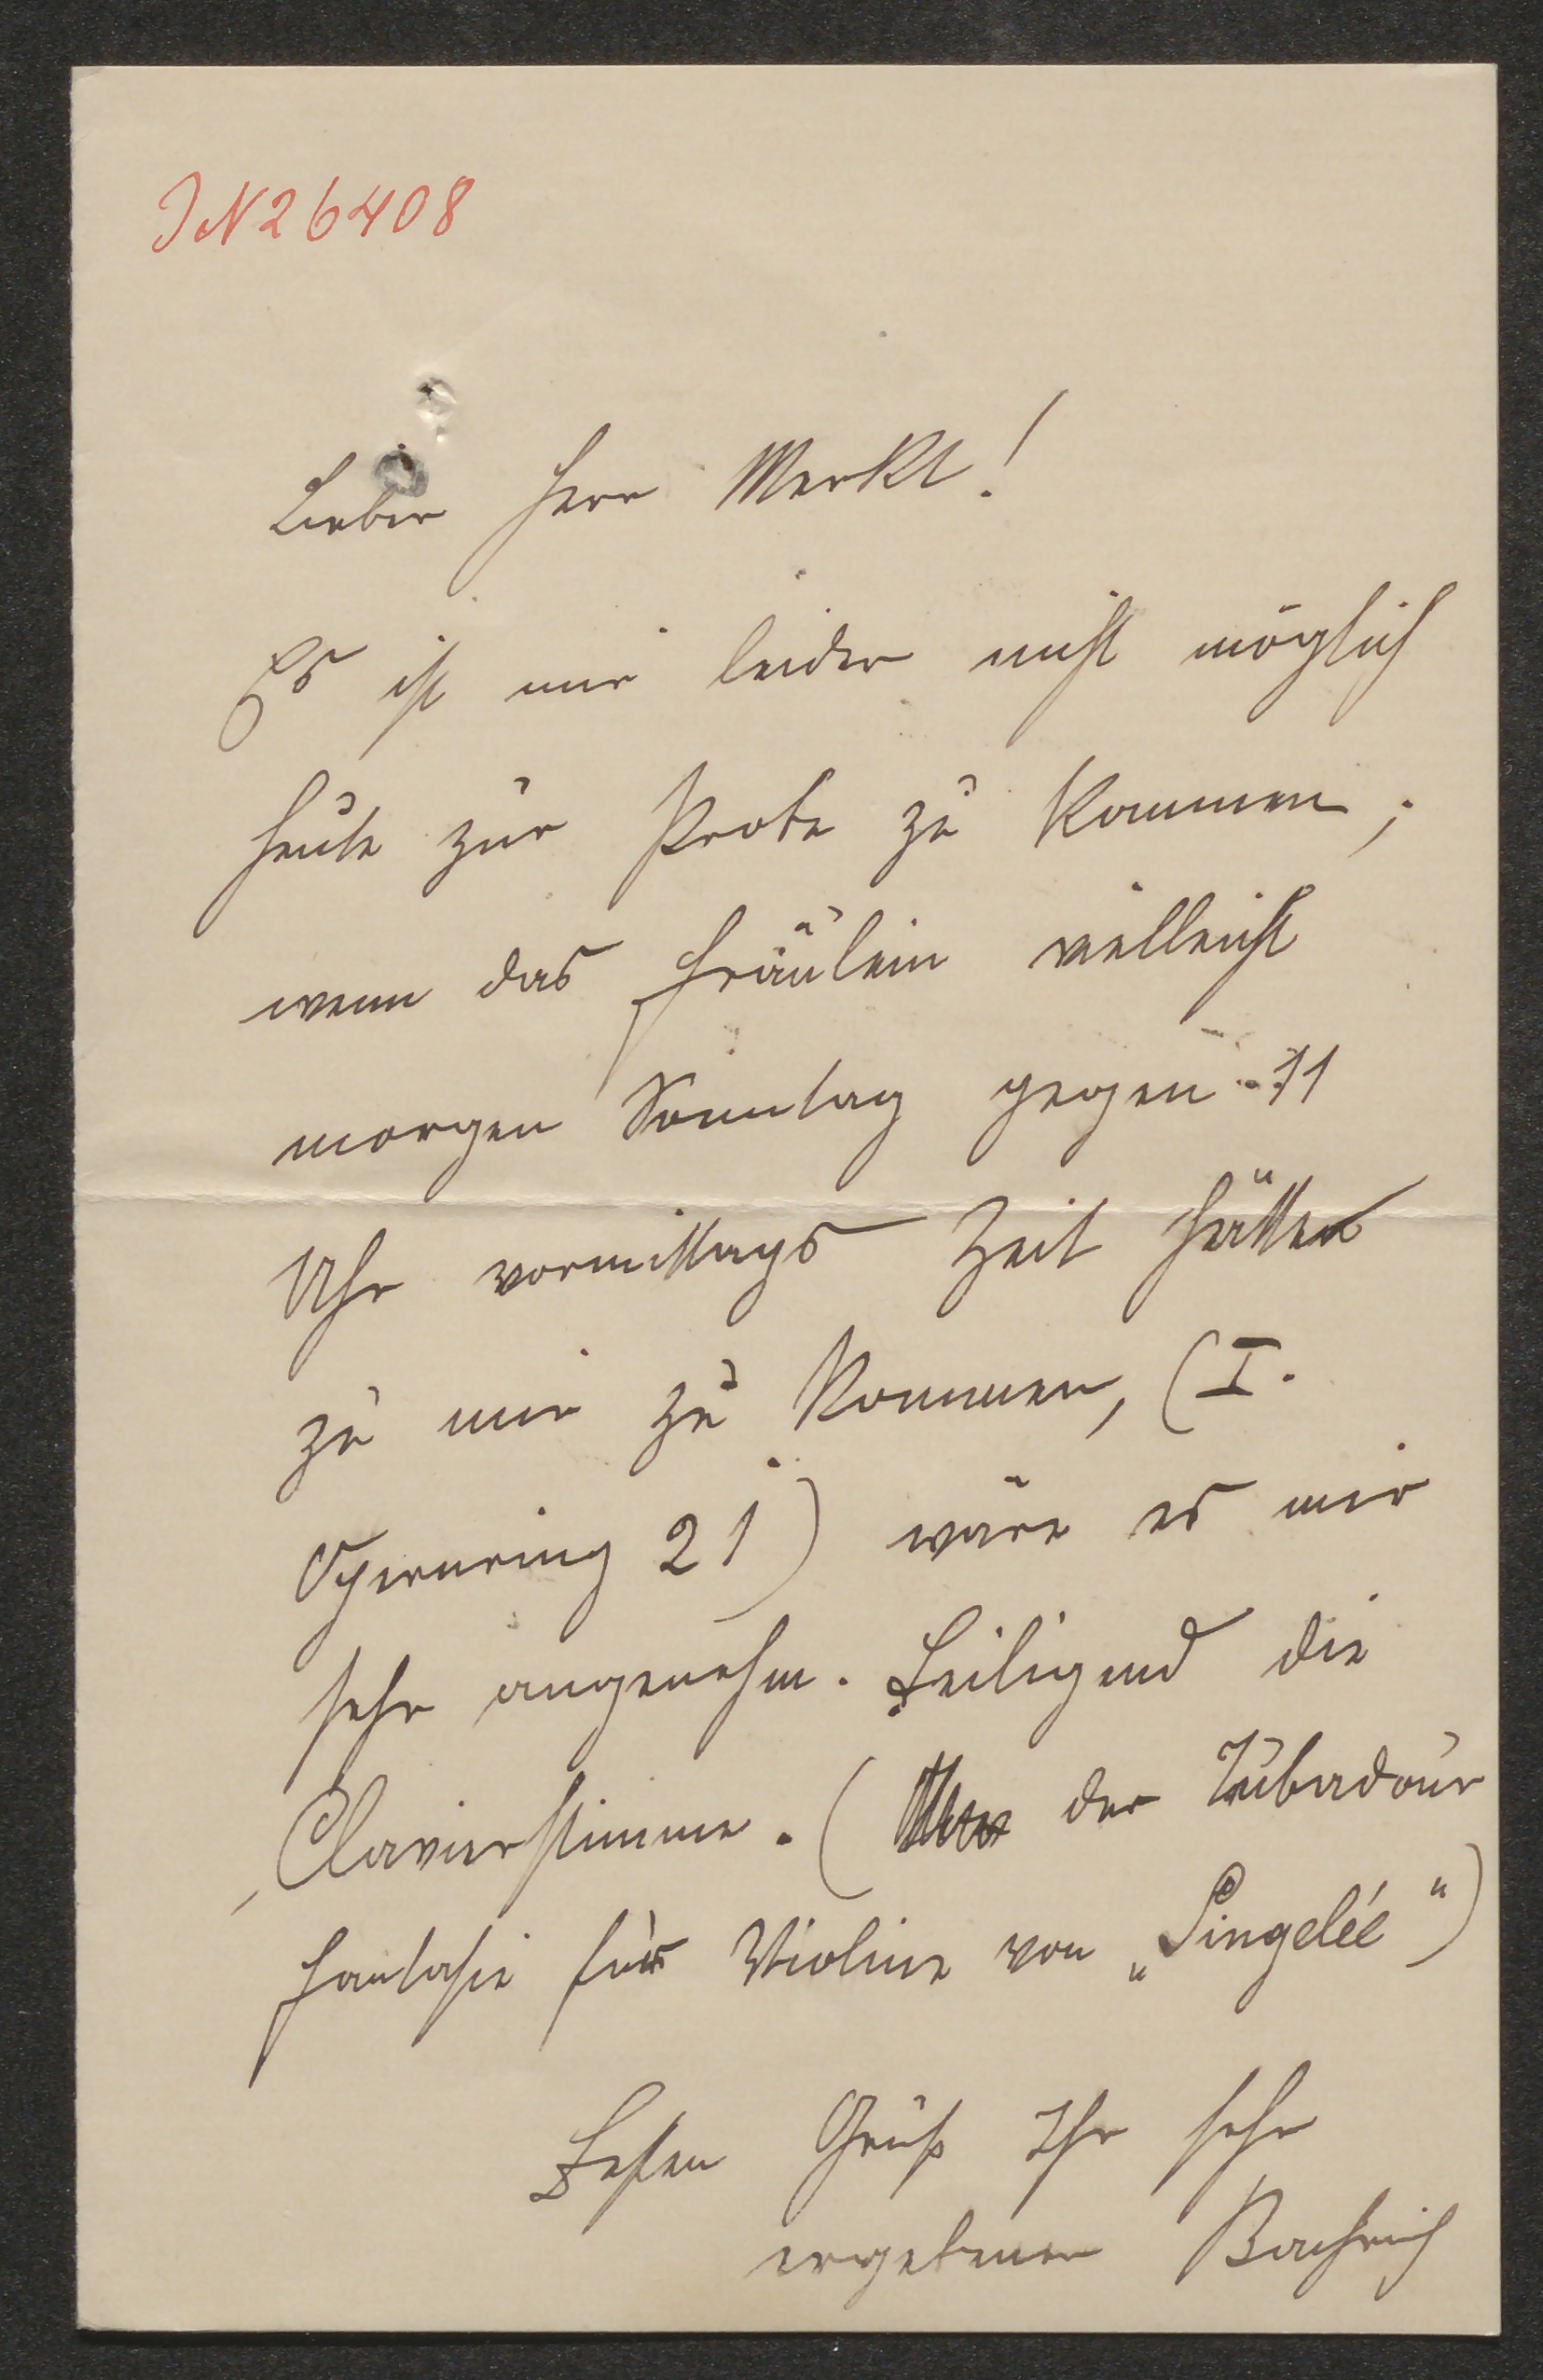 IN 26408
Lieber Herr Merkt!
Es ist mir leider nicht möglich
heute zur Probe zu kommen;
wenn das Fräulein vielleicht
morgen Sonntag gegen 11
Uhr vormittags Zeit hätte
zu mir zu kommen, (I.
Opernring 21) wäre es mir
sehr angenehm. Beiliegend die
Clavierstimme. ( der Trubadour
Fantasie für Violine von „Singelée")
Besten Gruß Ihr sehr
ergebener Bachrich